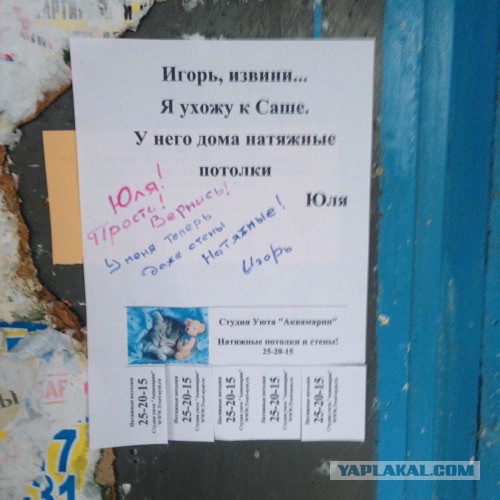 Игорь, извини...
Я ухожу к Саше.
У него дома натяжные
потолки
Юля
Юля!
Прости!
Вернись!
У меня теперь
даже стены
Натяжные!
Игорь
Студия Уюта "Аквамарин"
Натяжные потолки и стены!
25-20-15
Натяжные потолки
25-20-15
Студия уюта "Аквамарин"
Натяжные потолки
25-20-15
Студия уюта "Аквамарин"
Натяжные потолки
25-20-15
Студия уюта "Аквамарин"
Натяжные потолки
25-20-15
Студия уюта "Аквамарин"
Натяжные потолки
25-20-15
Студия уюта "Аквамарин"
31
YAPLAKAL.COM